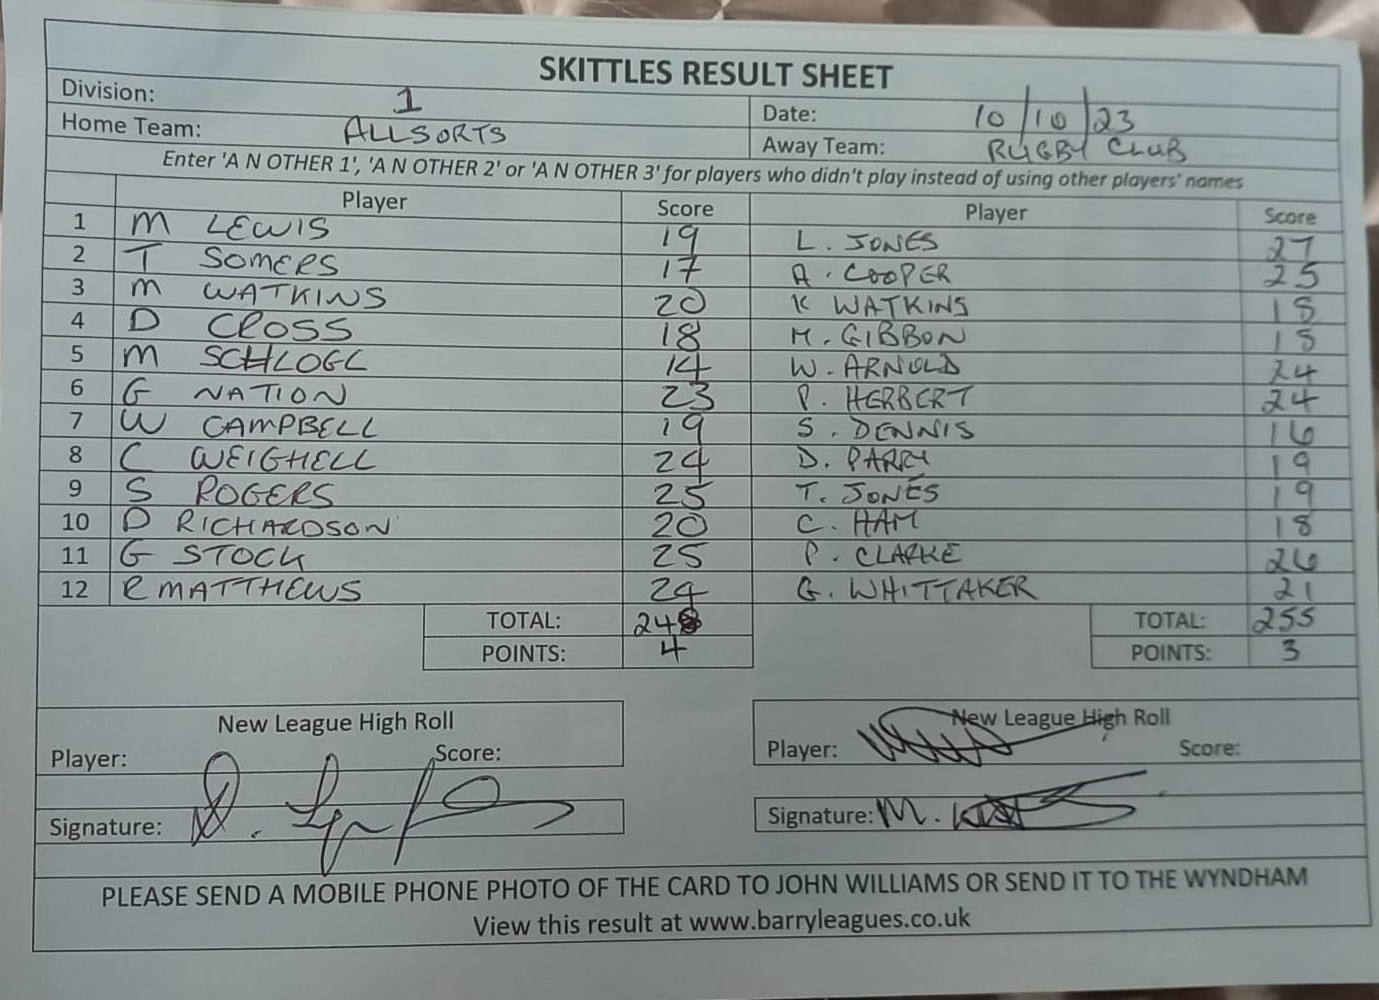 SKITTLES RESULT SHEET
Division: 1 Date: 10/10/23
Home Team: ALLSORTS Away Team: RUGBY CLUB
Enter 'A N OTHER 1', 'A N OTHER 2' or 'A N OTHER 3' for players who didn't play instead of using other players' names
Player Score Player Score
1 M LEWIS 19 L. JONES 27
2 T SOMERS 17 A. COOPER 25
3 M WATKINS 20 K WATKINS 18
4 D CROSS 18 M. GIBBON 18
5 M SCHLOGL 14 W. ARNOLD 24
6 G NATION 23 P. HERBERT 24
7 W CAMPBELL 19 S. DENNIS 16
8 C WEIGHELL 24 D. PARRY 19
9 S ROGERS 25 T. JONES 19
10 D RICHARDSON 20 C. HAM 18
11 G STOCK 25 P. CLARKE 26
12 R MATTHEWS 24 G. WHITTAKER 21
TOTAL: 248 TOTAL: 255
POINTS: 4 POINTS: 3
New League High Roll New League High Roll
Player: Score: Player: Score:
Signature: Signature: M.
PLEASE SEND A MOBILE PHONE PHOTO OF THE CARD TO JOHN WILLIAMS OR SEND IT TO THE WYNDHAM
View this result at www.barryleagues.co.uk